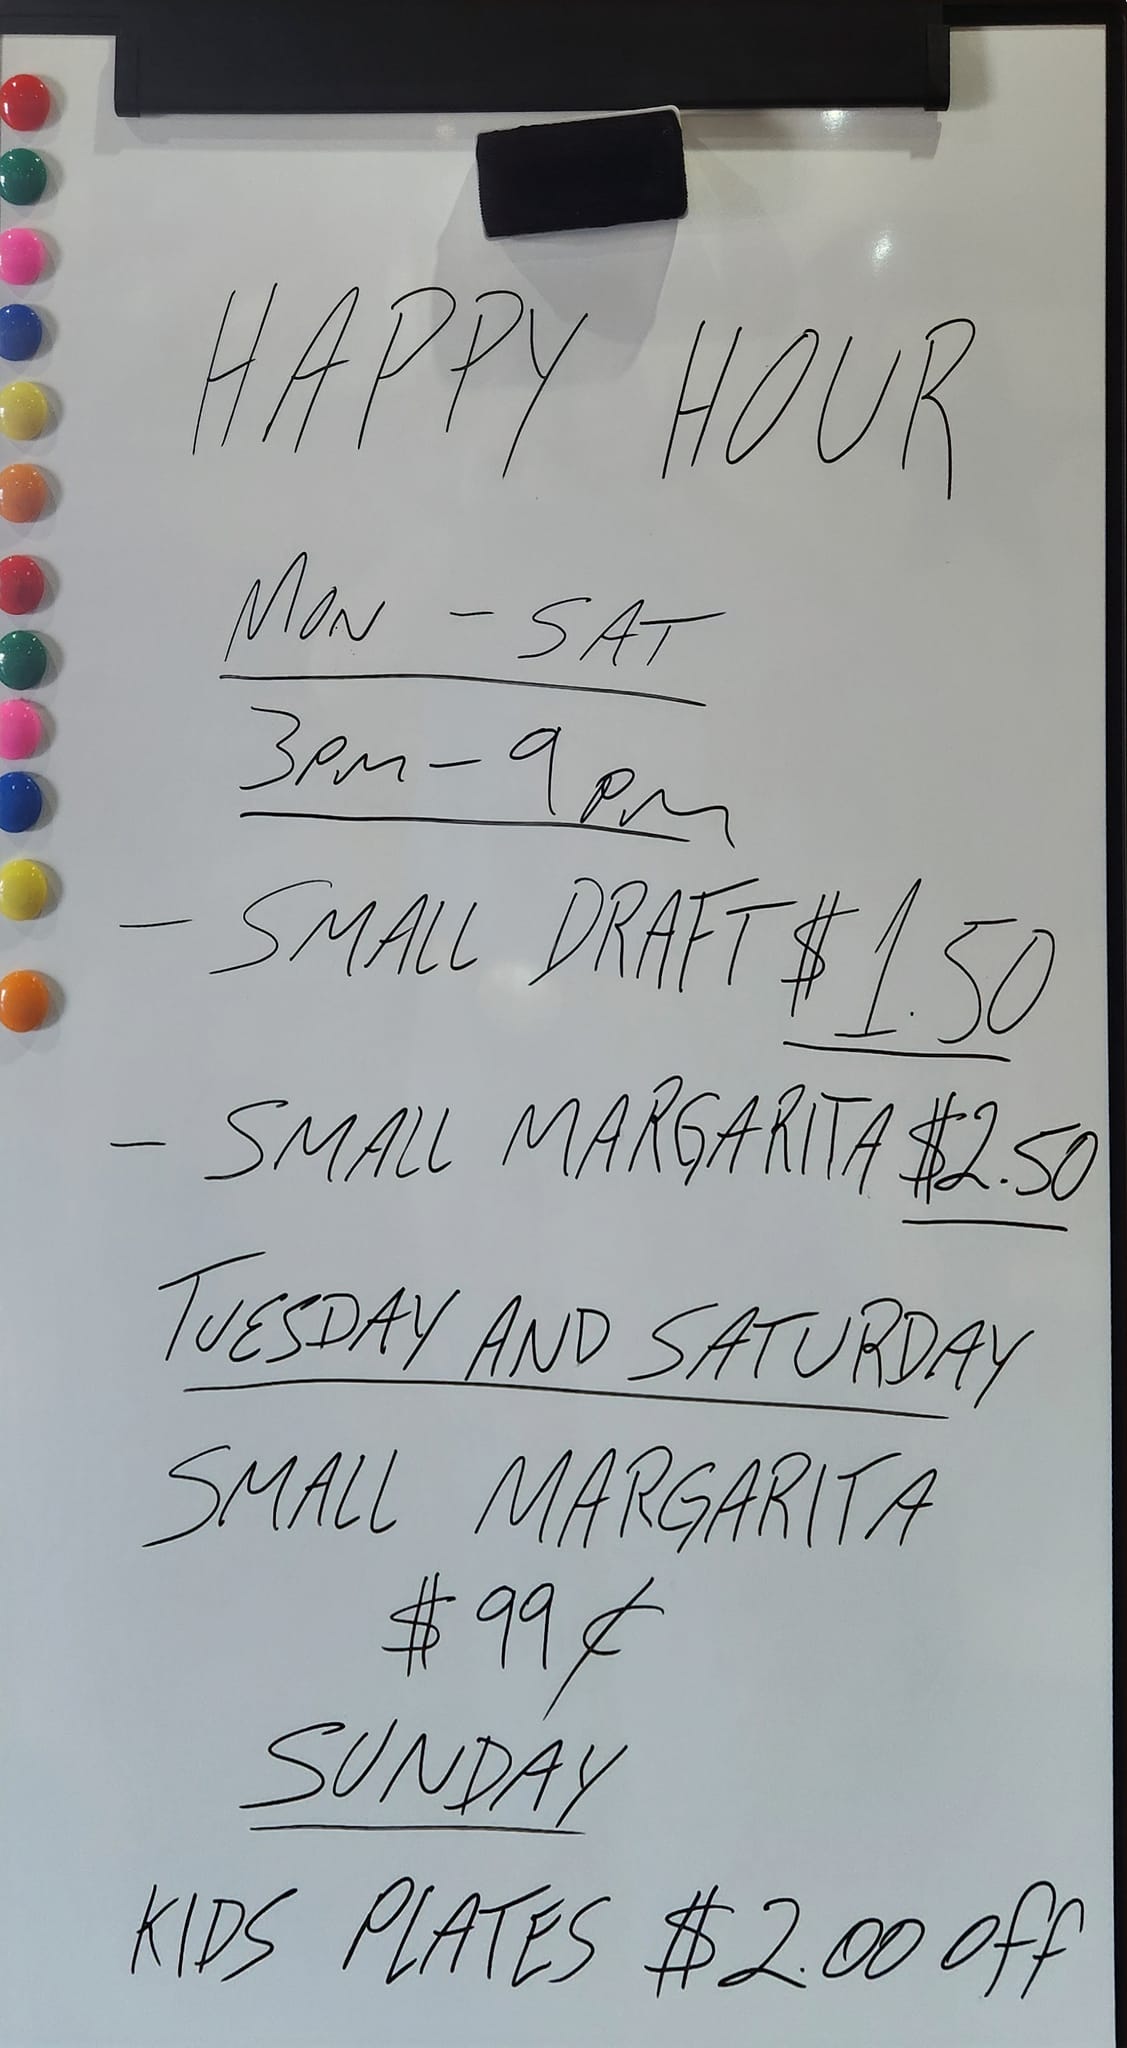 HAPPY HOUR
MON - SAT
3PM - 9PM
- SMALL DRAFT $1.50
- SMALL MARGARITA $2.50
TUESDAY AND SATURDAY
SMALL MARGARITA
$ 99 ¢
SUNDAY
KIDS PLATES $2.00 off